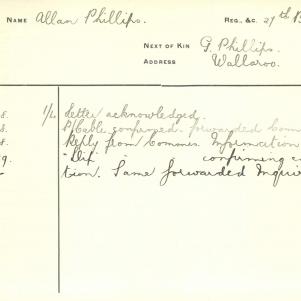 NAME Allan Phillips. REG., &C. 27th B
NEXT OF KIN G. Phillips.
ADDRESS Wallaroo.
8. 1/2 Letter acknowledged.
8. P/Cable confirmed. forwarded Comm
8. Reply from Commr. Information
9. "Dix" " confirming
tion. Same forwarded Inquir